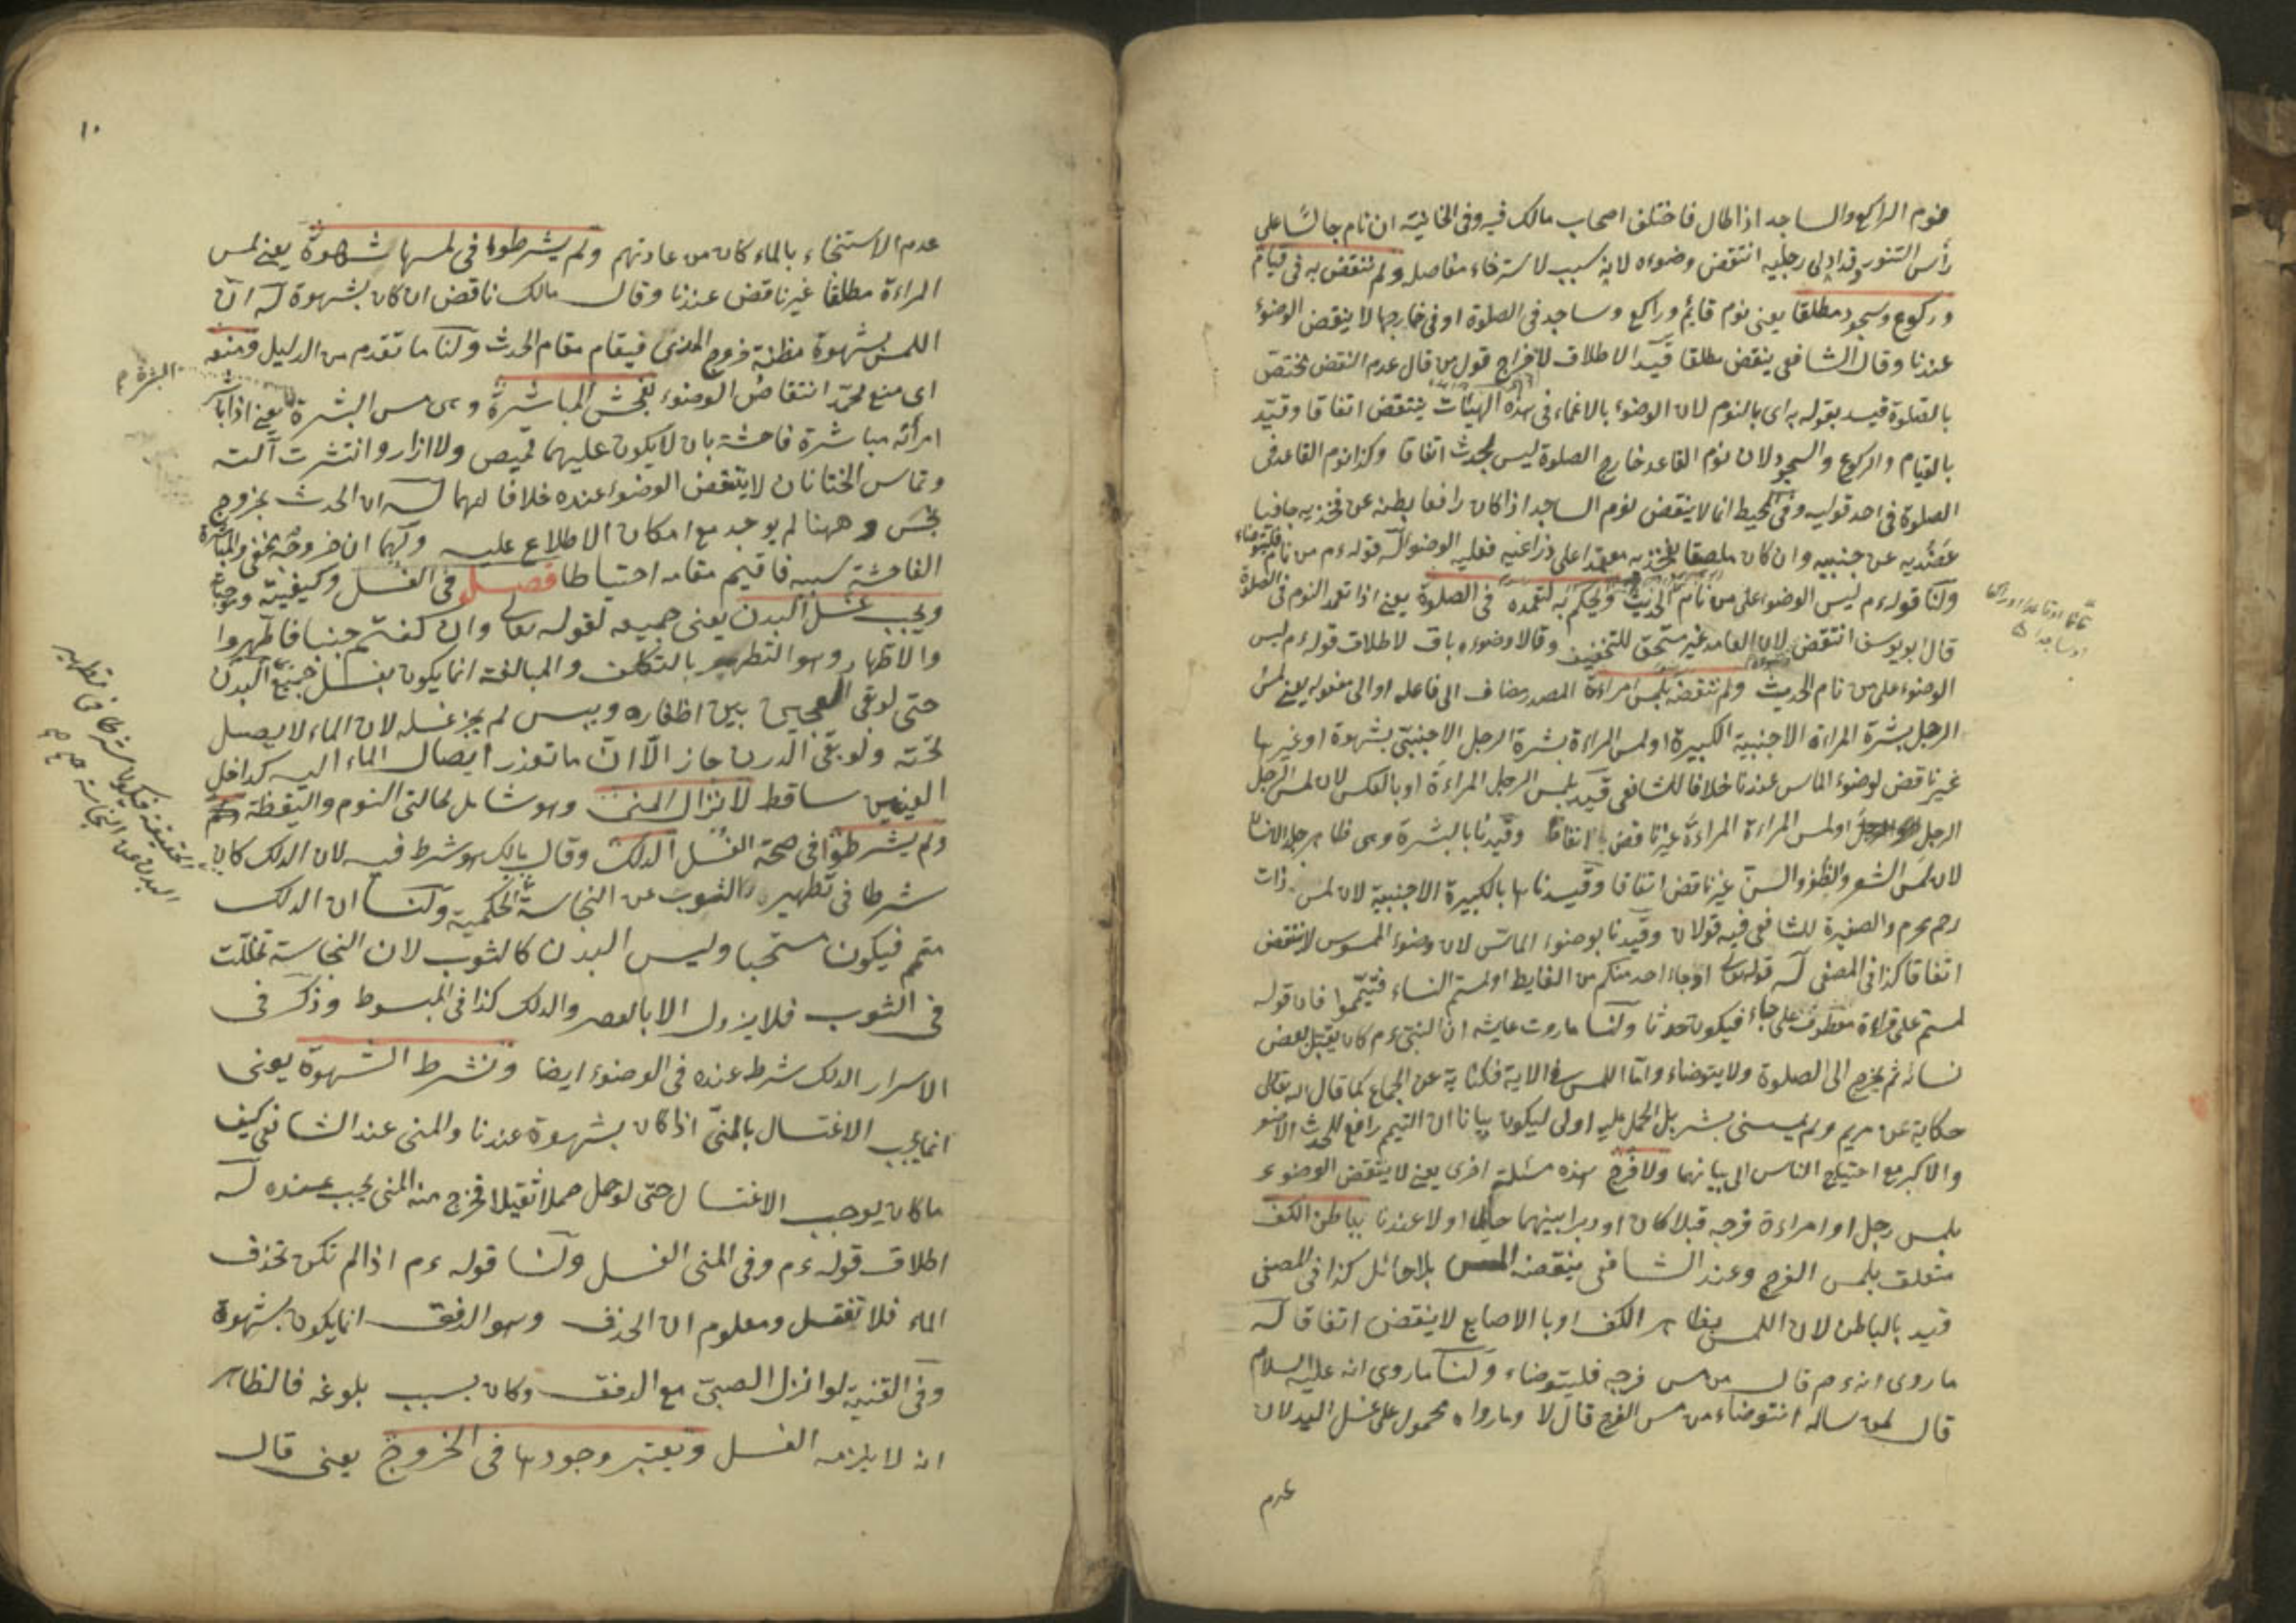 فنوم الراكع والساجد اذا طال فاختلف اصحاب مالك فيه وفى الخانية ان نام جالسًا على
رأس التنور وقد ادلى رجليه انتقض وضوءه لانه سبب لاسترخاء مفاصله ولم ننقض به فى قيام
وركوع وسجود مطلقا يعنى نوم قايم وراكع وساجد فى الصلوة او فى خارجها لا ينقض الوضوء
عندنا وقال الشافعى ينقض مطلقا قيد الاطلاق لاخراج قول من قال عدم النقض مختص
بالصلوة قيد بقوله به اى بالنوم لان الوضوء بالاغماء فى هذه الهيئات ينتقض اتفاقا وقيد
بالقيام والركوع والسجود لان نوم القاعد خارج الصلوة ليس بحدث اتفاقا وكذا نوم القاعد فى
الصلوة فى احد قوليه وفى المحيط انما لا ينقض نوم الساجد اذا كان رافعا بطنه عن فخذيه جافيا
عضديه عن جنبيه وان كان ملصقا بفخذيه معتمدا على ذراعيه فعليه الوضوء له قوله ءم من نام فليتوضاء
ولنا قوله ءم ليس الوضوء على من نام الحديث ويحكم به لتعمده فى الصلوة يعنى اذا تعمد النوم فى الصلوة
قال ابو يوسف انتقض لان العامد غير مستحق للتخفيف وقالا وضوءه باق لاطلاق قوله ءم ليس
الوضوء على من نام الحديث ولم ننقضه بلمس امراءة المصدر مضاف الى فاعله او الى مفعوله يعنى لمس
الرجل بشرة المراءة الاجنبية الكبيرة او لمس المراءة بشرة الرجل الاجنبى بشهوة او غيرها
غير ناقض لوضوء الماس عندنا خلافا للشافعى قيد بلمس الرجل المراءة او بالعكس لان لمس الرجل
الرجل او لمس المراءة المراءة غير ناقض اتفاقا وقيدنا بالبشرة وهى ظاهر جلد الانسان
لان لمس الشعر والظفر والسن غير ناقض اتفاقا وقيدناها بالكبيرة الاجنبية لان لمس ذات
رحم محرم والصغيرة للشافعى فيه قولان وقيدنا بوضوء الماس لان وضوء الممسوس لا ينتقض
اتفاقا كذا فى المصفى له قوله تعالى او جاء احد منكم من الغايط او لمستم النساء فتيمموا فان قوله
لمستم على قراءة معطوف على جاء فيكون حدثا ولنا ما روت عايشه ان النبى ءم كان يقبل بعض
نسائه ثم يخرج الى الصلوة ولا يتوضاء واما اللمس فى الاية فكناية عن الجماع كما قال الله تعالى
حكاية عن مريم ولم يمسسنى بشر بل الحمل عليه اولى ليكون بيانا ان التيمم رافع للحدث الاصغر
والاكبر مع احتياج الناس الى بيانهما ولا فرج هذه مسئلة اخرى يعنى لا ينتقض الوضوء
بلمس رجل او امراءة فرجه قبلا كان او دبرا بينهما حايل اولا عندنا بباطن الكف
متعلق بلمس الفرج وعند الشافعى ينقضه المس بلا حائل كذا فى المصفى
قيد بالباطن لان اللمس بظاهر الكف او بالاصابع لا ينقض اتفاقا له
ما روى انه ءم قال من مس فرجه فليتوضاء ولنا ما روى انه عليه السلام
قال لمن ساله انتوضاء من مس الفرج قال لا وما رواه محمول على غسل اليد لان
عدم
١٠
عدم الاستنجاء بالماء كان من عادتهم ولم يشرطوا فى لمسها شهوة يعنى لمس
المراءة مطلقا غير ناقض عندنا وقال مالك ناقض ان كان بشهوة له ان
اللمس بشهوة مظنة خروج المذى فيقام مقام الحدث ولنا ما تقدم من الدليل ومنعه
اى منع محمد انتقاض الوضوء بفحش المباشرة وهى مس البشرة يعنى اذا باشر
البشرة م
امرأته مباشرة فاحشة بان لا يكون عليهما قميص ولا ازار وانتشرت آلته
وتماس الختانان لا ينتقض الوضوء عنده خلافا لهما له ان الحدث بخروج
نجس وههنا لم يوجد مع امكان الاطلاع عليه ولهما ان خروجه يخفى والمباشرة
الفاحشة سببه فاقيم مقامه احتياطا فصل فى الغسل وكيفيته وموجباته
ويجب غسل البدن يعنى جميعه لقوله تعالى وان كنتم جنبا فاطهروا
والاطهار وهو التطهير بالتكلف والمبالغة انما يكون بغسل جميع البدن
حتى لو بقى العجين بين اظفاره ويبس لم يجز غسله لان الماء لا يصل
تحته ولو بقى الدرن جاز الا ان ما تعذر ايصال الماء اليه كداخل
العينين ساقط لانزال المنى وهو شامل لحالتى النوم واليقظة
ولم يشرطوا فى صحة الغسل الدلك وقال مالك هو شرط فيه لان الدلك كان
شرطا فى تطهير الثوب عن النجاسة الحكمية ولنا ان الدلك
متمم فيكون مستحبا وليس البدن كالثوب لان النجاسة تخللت
فى الثوب فلا يزول الا بالعصر والدلك كذا فى المبسوط وذكر فى
الاسرار الدلك شرط عنده فى الوضوء ايضا ونشرط الشهوة يعنى
انما يجب الاغتسال بالمنى اذا كان بشهوة عندنا والمنى عند الشافعى كيف
ما كان يوجب الاغتسال حتى لو حمل حملا ثقيلا فخرج منه المنى يجب عنده له
اطلاق قوله ءم وفى المنى الغسل ولنا قوله ءم اذا لم تكن تحذف
الماء فلا تغتسل ومعلوم ان الحذف وهو الدفق انما يكون بشهوة
وفى القنية لو انزل الصبى مع الدفق وكان بسبب بلوغه فالظاهر
انه لا يلزمه الغسل ونعتبر وجودها فى الخروج يعنى قال
الحقيقية فيكون شرطا فى تطهير
البدن عن النجاسة